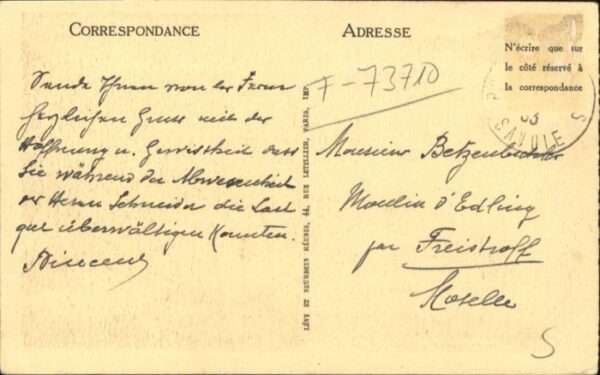 CORRESPONDANCE
Sende Ihnen von der Ferne
herzlichen Gruss mit der
Hoffnung u. Gewissheit dass
Sie während der Abwesenheit
des Herrn Schneider die Last
gut überwältigen konnten.
LÉVY ET NEURDEIN RÉUNIS, 44, RUE LETELLIER, PARIS, IMP.
ADRESSE
N'écrire que sur
le côté réservé à
la correspondance
F-73710
SAVOIE
Monsieur
Moulin d'Edling
par Freistroff
Moselle
5